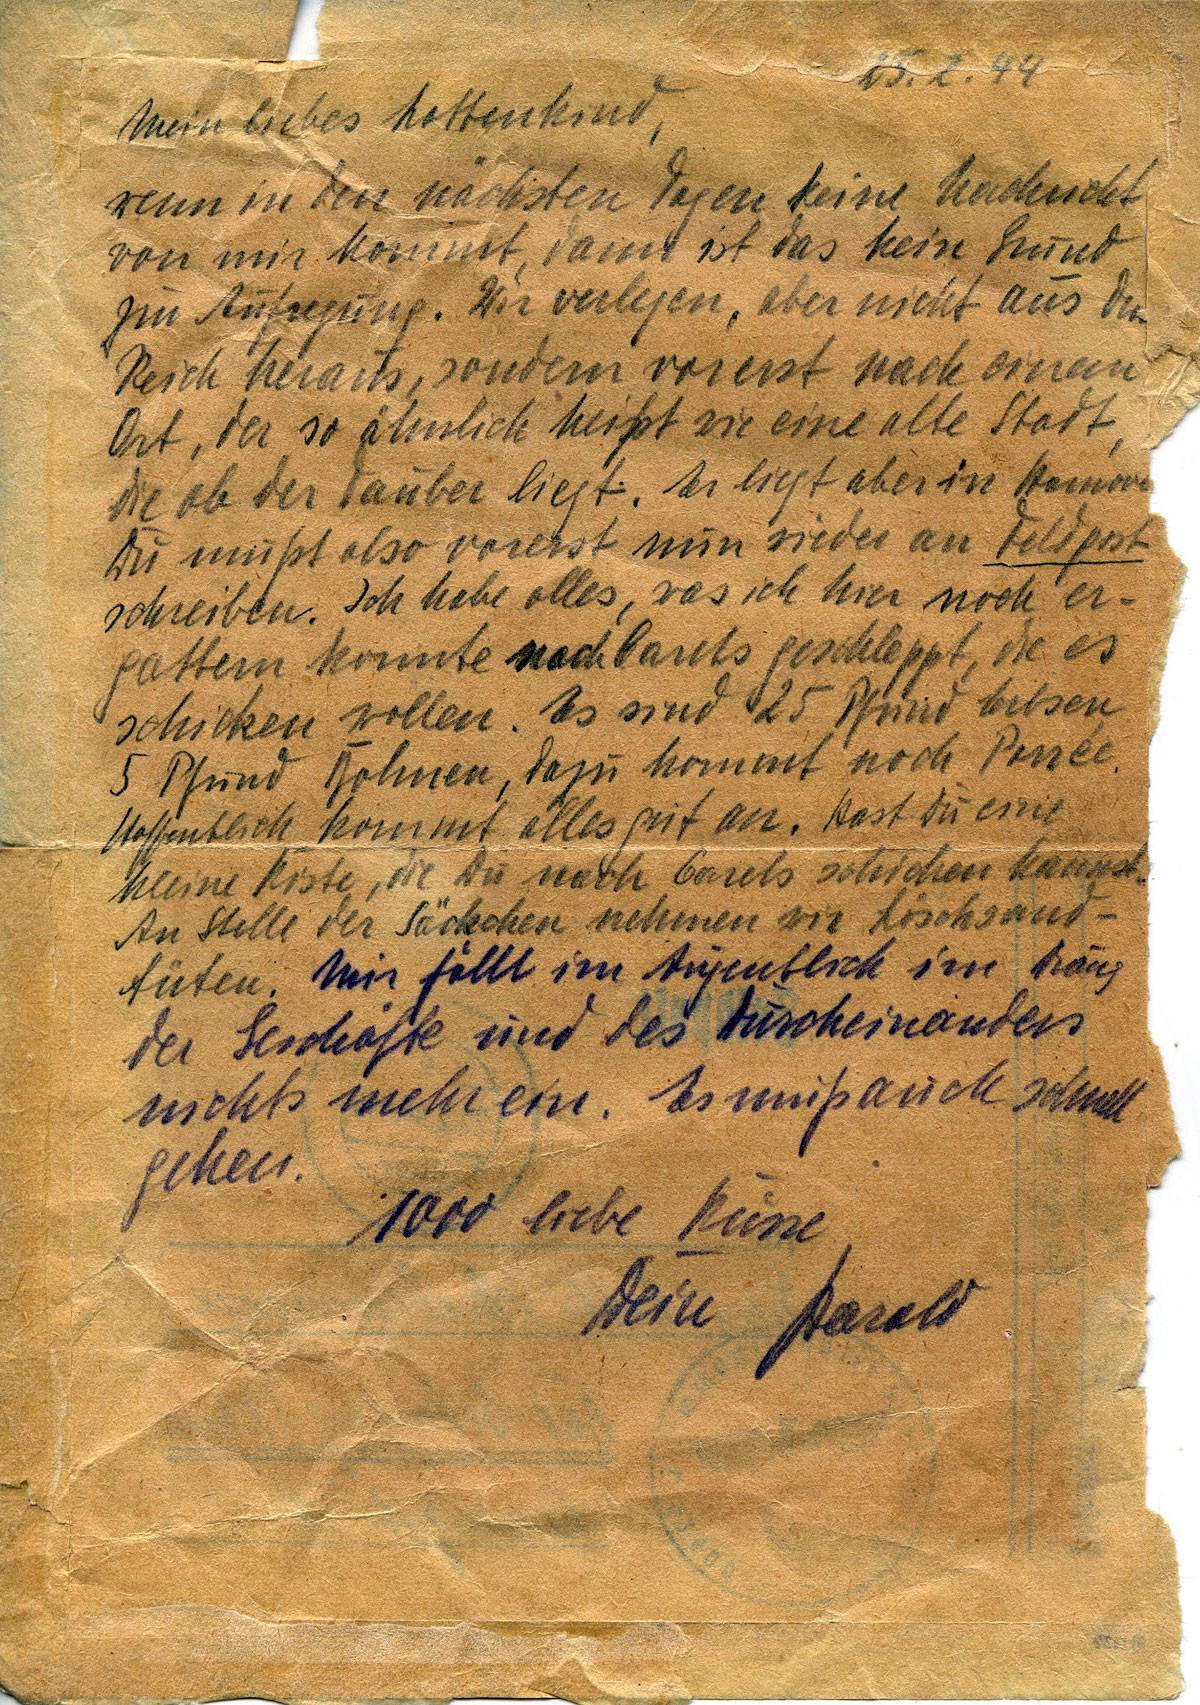 25.2.44
Mein liebes Lottenkind,
wenn in den nächsten Tagen keine Nachricht
von mir kommt, dann ist das kein Grund
zur Aufregung. Wir verlegen, aber nicht aus dem
Reich heraus, sondern vorerst nach einem
Ort, der so ähnlich heißt wie eine alte Stadt,
die ob der Tauber liegt. Er liegt aber in Hannover
Du mußt also vorerst nun wieder an Feldpost
schreiben. Ich habe alles, was ich hier noch er-
gattern konnte nach Carels geschleppt, die es
schicken wollen. Es sind 25 Pfund Erbsen
5 Pfund Bohnen, dazu kommt noch Porrée.
Hoffentlich kommt alles gut an. Hast Du eine
kleine Kiste, die Du nach Carels schicken kannst.
An Stelle der Säckchen nehmen wir Löschsand-
tüten. Mir fällt im Augenblick im Drang
der Geschäfte und des Durcheinanders
nichts mehr ein. Es muß auch schnell
gehen.
1000 liebe Küsse
Dein Harald